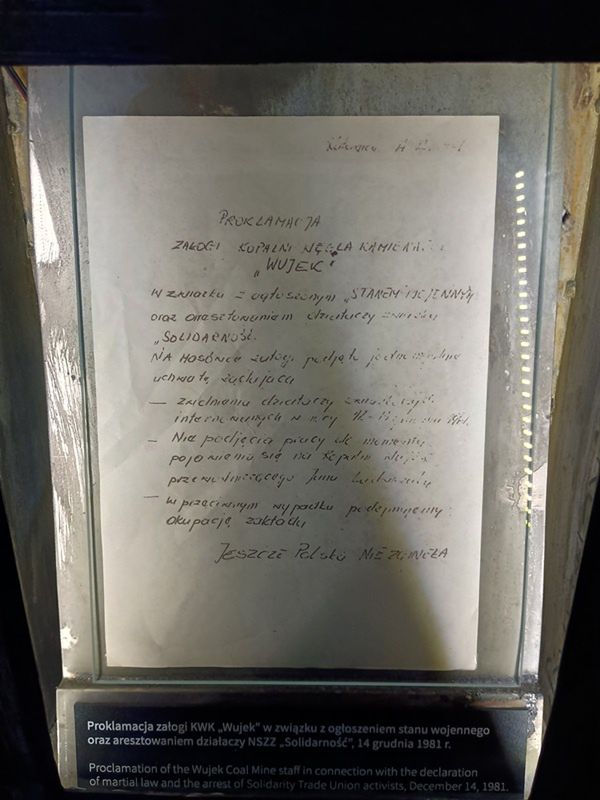 PROKLAMACJA
ZAŁOGI KOPALNI WĘGLA
„WUJEK"
W związku z ogłoszonym „STANEM WOJENNYM
oraz aresztowaniem działaczy związku
„SOLIDARNOŚĆ.
NA Masówce załogi podjęto jednomyślnie
uchwałę żądającą
— zwolnienia działaczy
internowanych w nocy
— Nie podjęcia pracy do momentu
pojawienia się na kopalni Wujek
przewodniczącego
— w przeciwnym wypadku podejmujemy
okupację zakładu
JESZCZE Polska NIE ZGINĘŁA
Proklamacja załogi KWK „Wujek" w związku z ogłoszeniem stanu wojennego
oraz aresztowaniem działaczy NSZZ „Solidarność", 14 grudnia 1981 r.
Proclamation of the Wujek Coal Mine staff in connection with the declaration
of martial law and the arrest of Solidarity Trade Union activists, December 14, 1981.